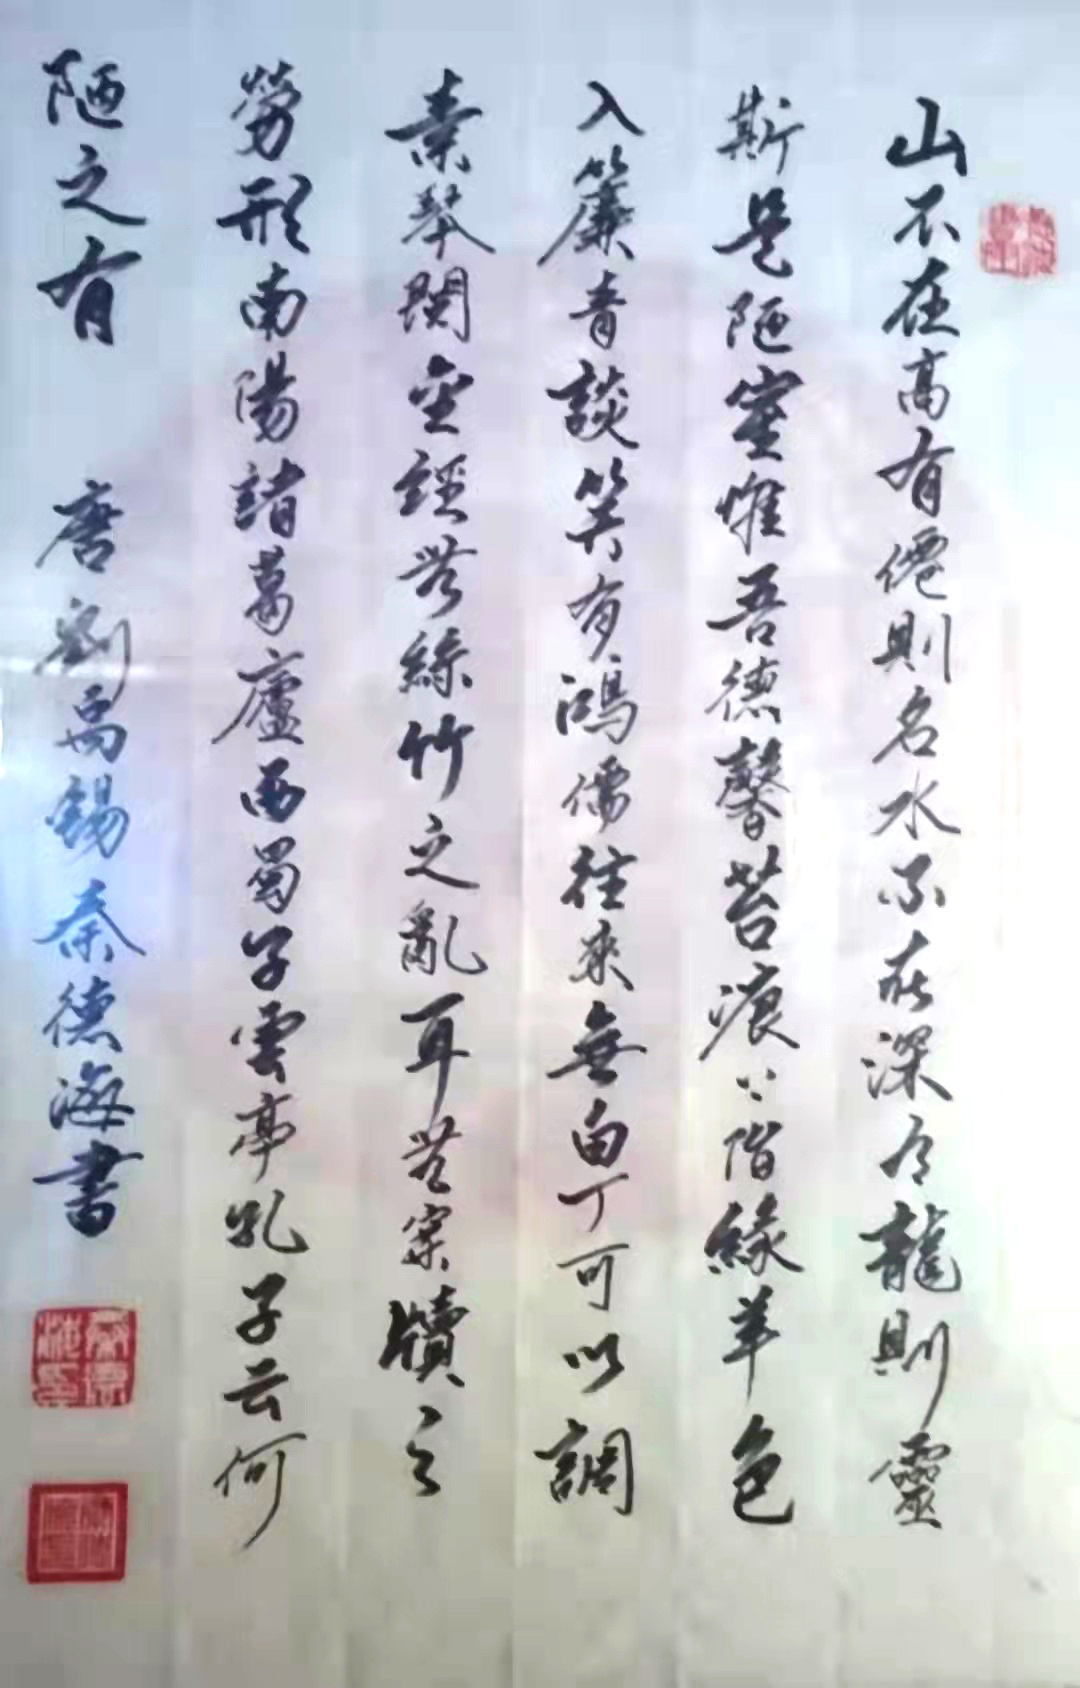 山不在高有僊則名水不在深有龍則靈
斯是陋室惟吾德馨苔痕上階綠草色
入簾青談笑有鴻儒往來無白丁可以調
素琴閱金經無絲竹之亂耳無案牘之
勞形南陽諸葛廬西蜀子雲亭孔子云何
陋之有 唐劉禹錫秦德海書
秦德海印